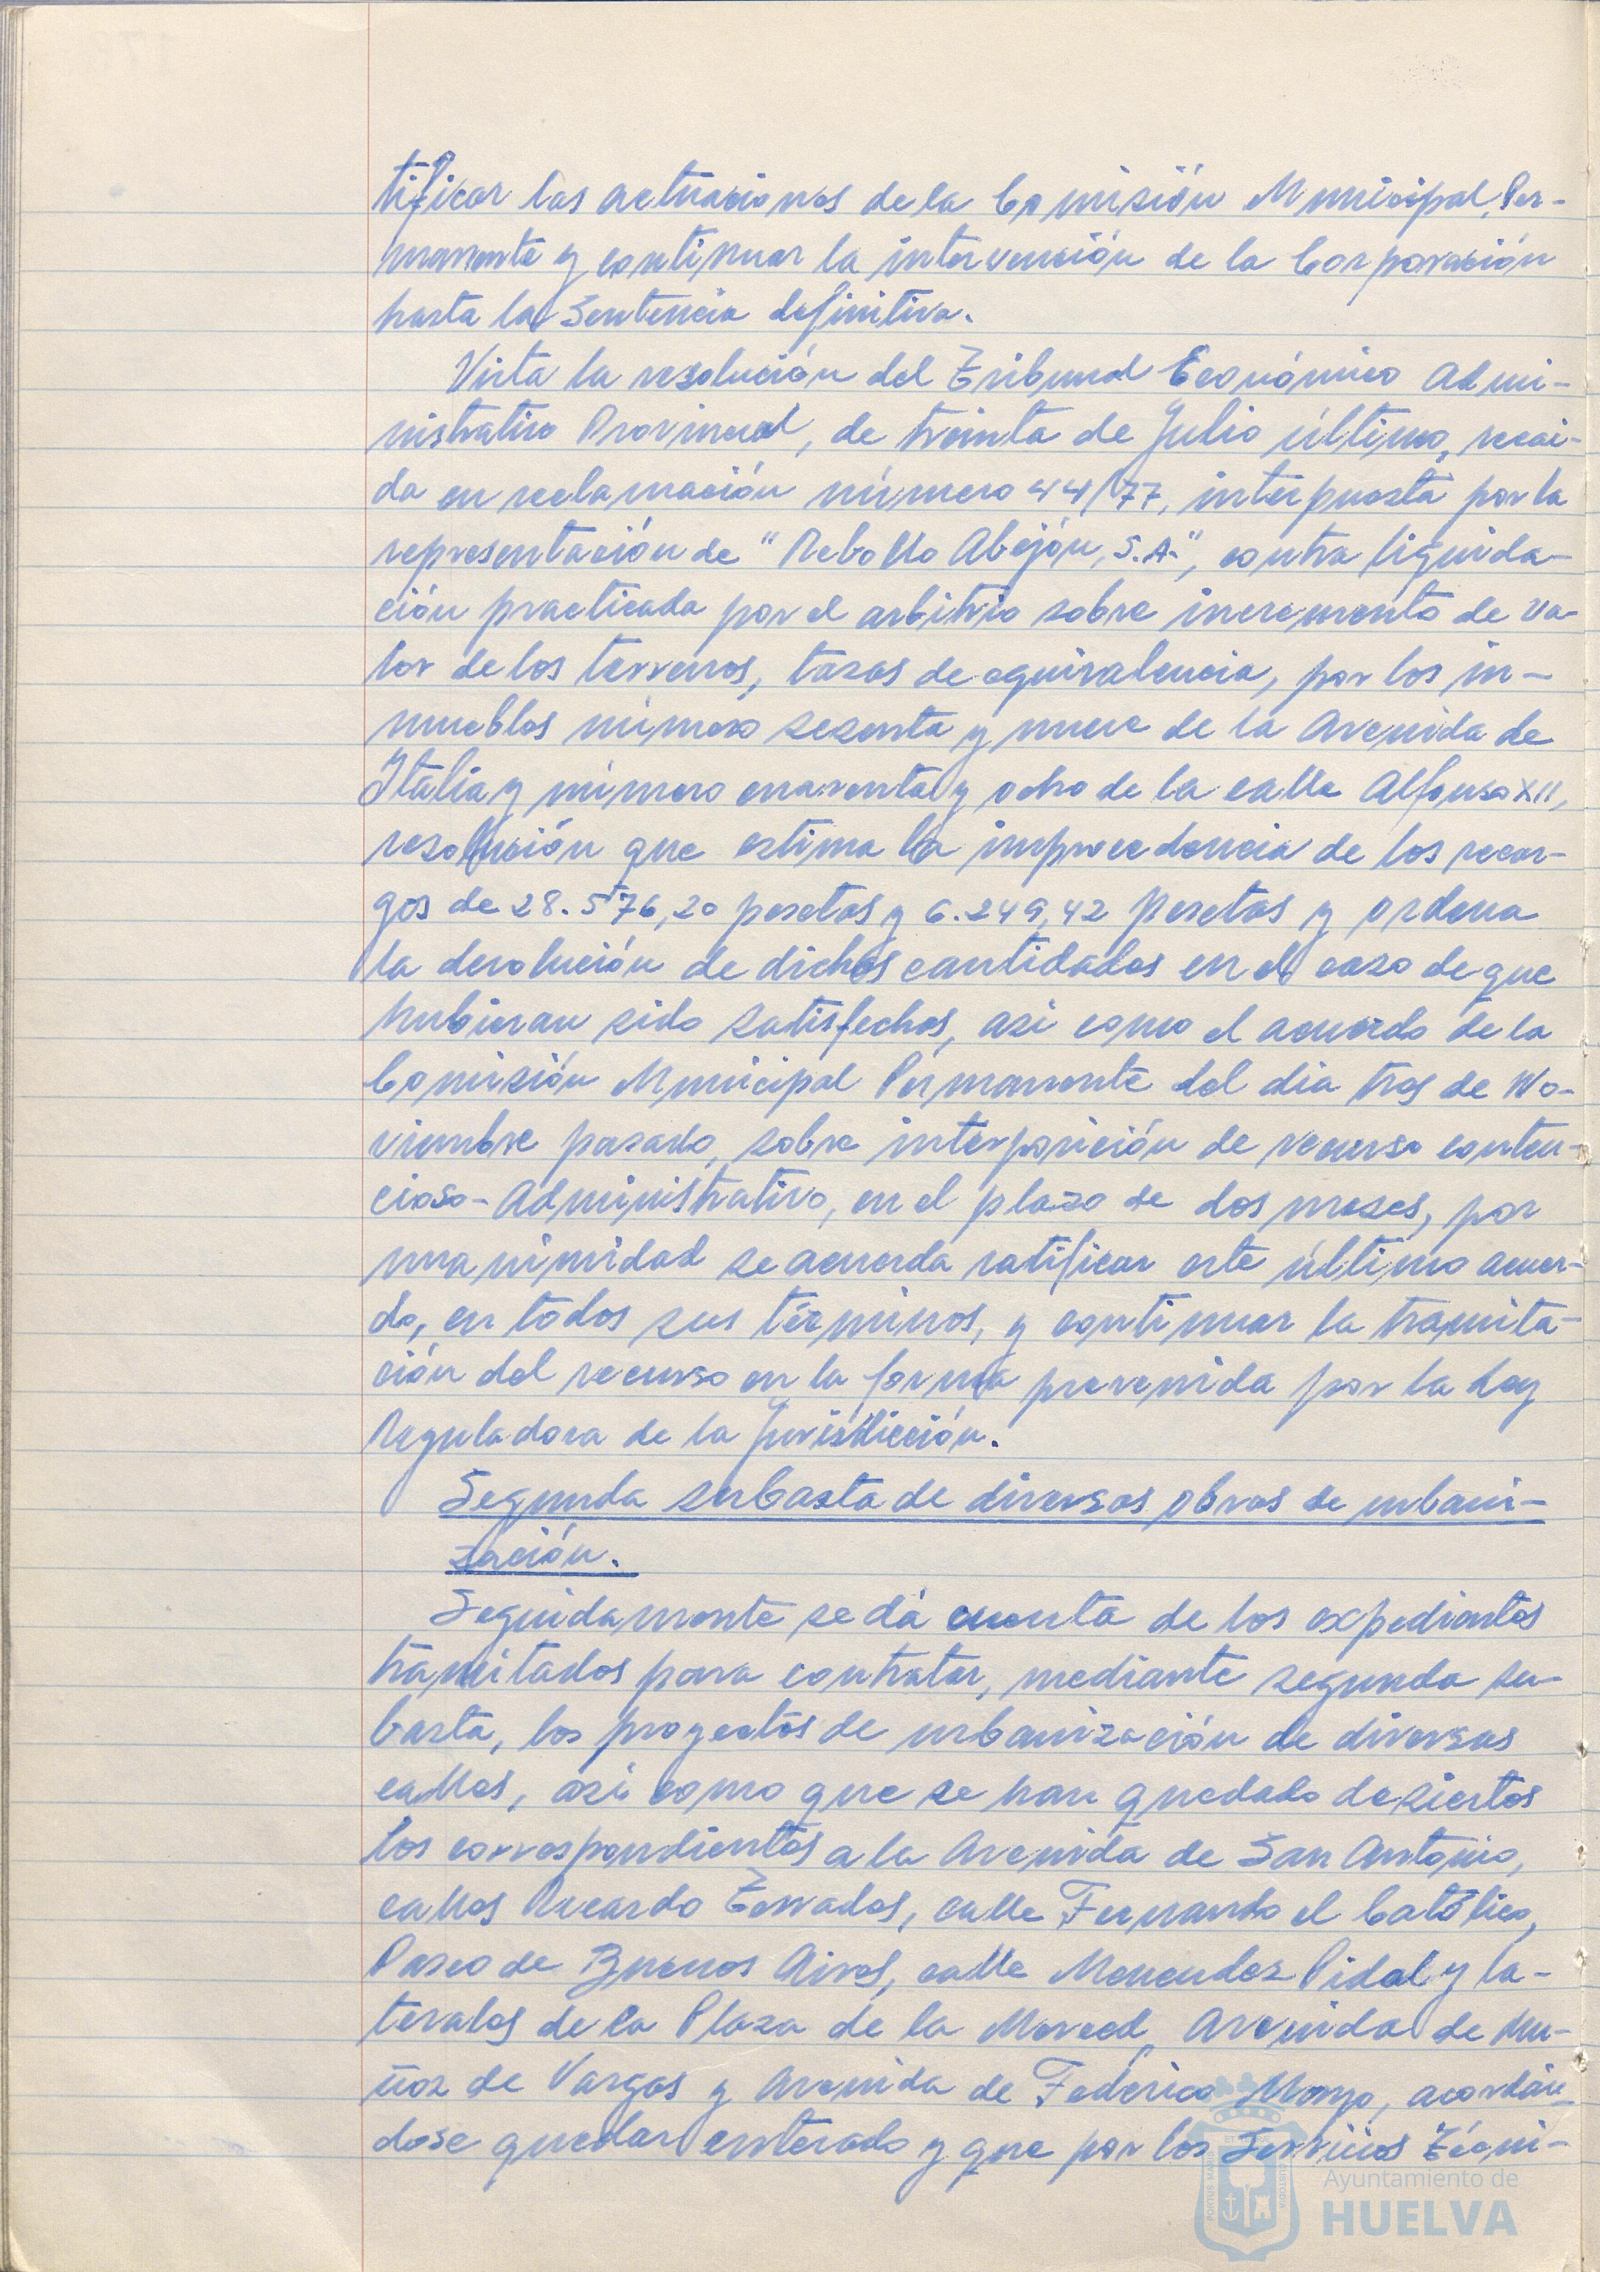 tificar las actuaciones de la Comisión Municipal Per-
manente y continuar la intervención de la Corporación
hasta la Sentencia definitiva.
Vista la resolución del Tribunal Económico Admi-
nistrativo Provincial, de treinta de Julio último, recai-
da en reclamación número 44/77, interpuesta por la
representación de "Rebollo Abejón, S.A.", contra liquida-
ción practicada por el arbitrio sobre incremento de va-
lor de los terrenos, tasas de equivalencia, por los in-
muebles número sesenta y nueve de la Avenida de
Italia y número cuarenta y ocho de la calle Alfonso XII,
resolución que estima la improcedencia de los recar-
gos de 28.576,20 pesetas y 6.249,42 pesetas y ordena
la devolución de dichas cantidades en el caso de que
hubieran sido satisfechos, asi como el acuerdo de la
Comisión Municipal Permanente del dia tres de No-
viembre pasado, sobre interposición de recurso conten-
cioso-Administrativo, en el plazo de dos meses, por
unanimidad se acuerda ratificar este último acuer-
do, en todos sus términos, y continuar la tramita-
ción del recurso en la forma prevenida por la Ley
Reguladora de la Jurisdicción.
Segunda subasta de diversas obras de urbani-
zación.
Seguidamente se dá cuenta de los expedientes
tramitados para contratar, mediante segunda su-
basta, los proyectos de urbanización de diversas
calles, asi como que se han quedado desiertos
los correspondientes a la Avenida de San Antonio,
calles Ricardo Terrades, calle Fernando el Católico,
Paseo de Buenos Aires, calle Menendez Pidal y la-
terales de la Plaza de la Merced, Avenida de Mu-
ñoz de Vargas y Avenida de Federico Mayo, acordán-
dose quedar enterado y que por los Servicios Técni-
Ayuntamiento de
HUELVA